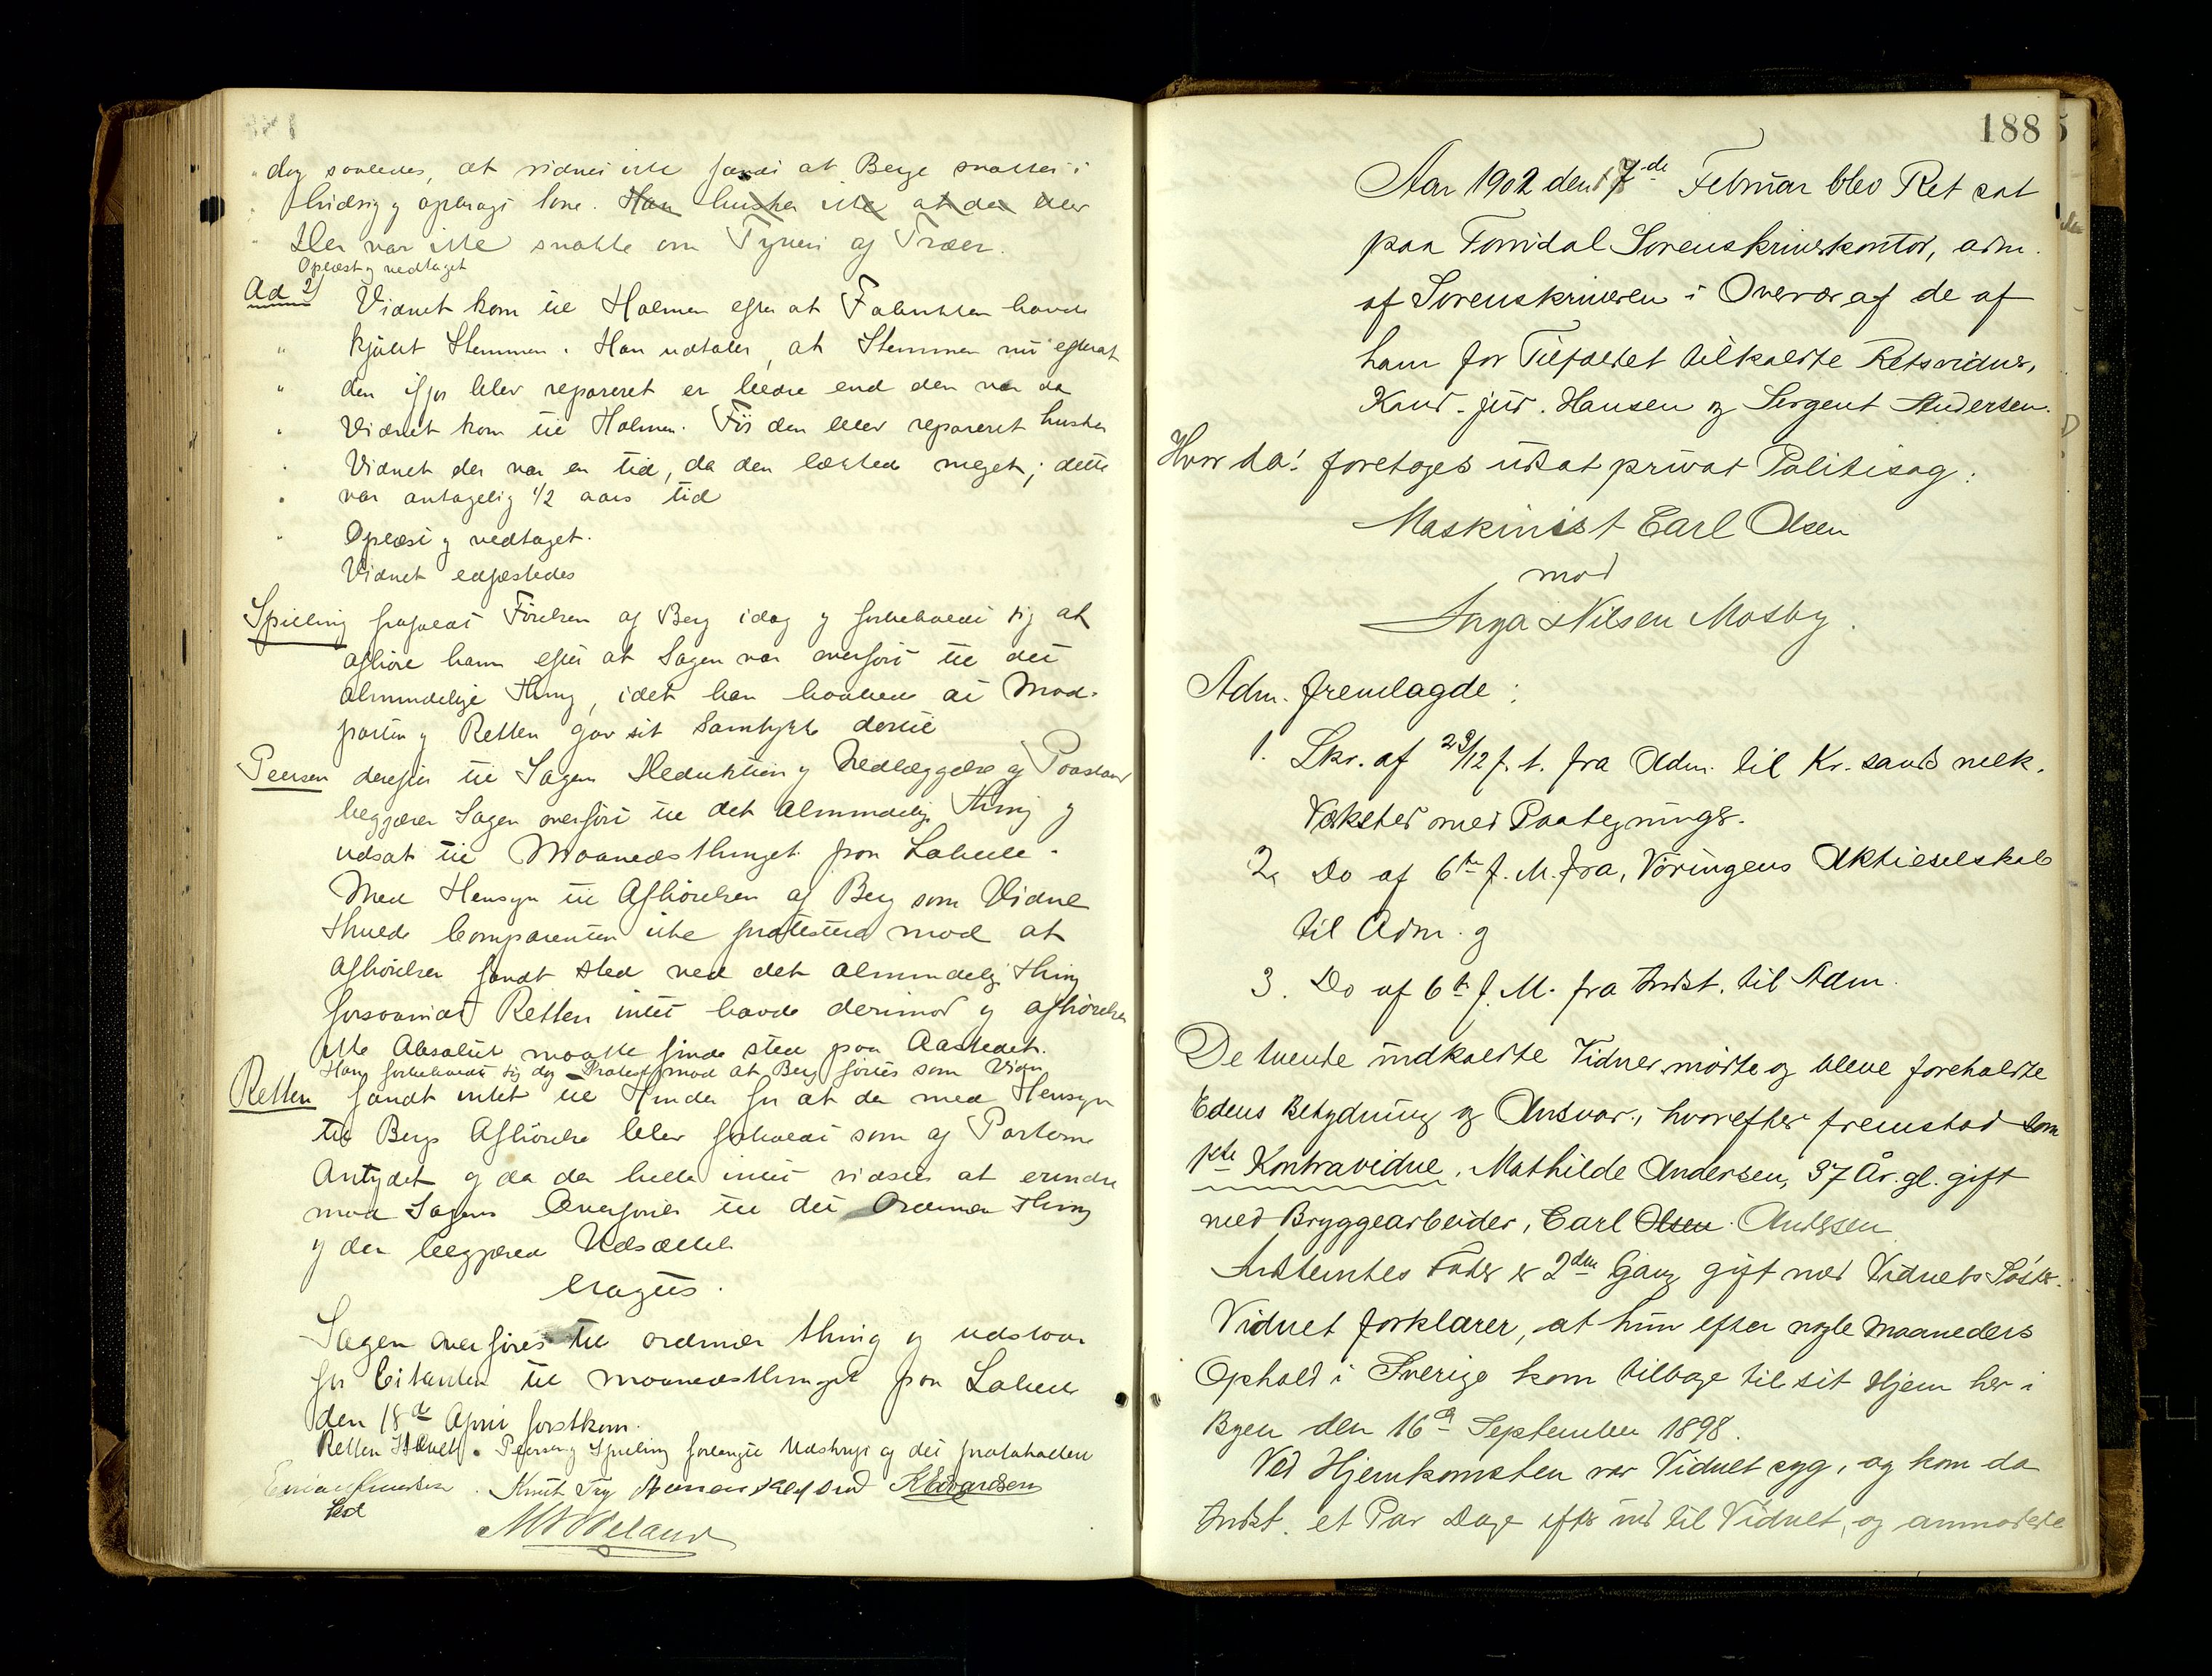 dog saaledes, at vidnet ikke fandt at Berge snakket i
hidsig og opbragt tone. Han husker ikke at der blev
Der var ikke snakke om Tyveri af Træer.
Oplæst og vedtaget
Ad 2) Vidnet kom til Holmen efter at Fabrikken havde
kjøbt Stemmen. Han udtaler, at Stemmen nu efterat
den ifjor blev repareret er bedre end den var da
Vidnet kom til Holmen. Før den blev repareret husker
Vidnet der var en tid, da den lækked meget; dette
var antagelig 1/2 aars tid
Oplæst og vedtaget.
Vidnet edfæstedes
Spieling frafaldt Førelsen af Berg idag og forbeholdt sig at
afhøre ham efter at Sagen var overført til det
almindelige Thing, idet han haabede at Mod-
parten og Retten gav sit Samtykke dertil
Peersen derefter til Sagens Deduktion og Nedlæggelse af Paastand
begjærer Sagen overført til det almindelige Thing og
udsat til Maanedsthinget paa Lahelle.
Med Hensyn til Afhørelsen af Berg som Vidne
skulde Comparenten ikke protestere mod at
Afhørelsen fandt sted ved det almindelige Thing
forsaavidt Retten intet havde derimod og afhørelsen
ikke Absolut maatte finde sted paa Aastedet.
Han forbeholdt sig dog Protest mod at Berg førtes som Vidne
Retten fandt intet til Hinder for at der med Hensyn
til Bergs Afhørelse blev forholdt som af Parterne
Antydet og da der heller intet vidstes at erindre
mod Sagens Overførsel til det Ordinær Thing
og den begjærede Udsættelse
eragtet.
Sagen overføres til ordinær thing og udstaar
for Citanten til maanedsthinget paa Lahelle
den 18de April førstkom.
Retten Hævet. Peersen og Spieling forlangte Udskrift af det protokollerte
Knut Try K Edvardsen
188
Aar 1902 den 7de Februar blev Ret sat
paa Torridal Sorenskriverkontor, adm.
af Sorenskriveren i Overvær af de af
ham for Tilfældet tilkaldte Retsvidner,
Kand. jur. Hansen og Sergent Andersen.
Hvor da! foretoges udsat privat Politisag:
Maskinist Carl Olsen
mod
Inga Nilsen Mosby.
Adm. fremlagde:
1. Skr. af 23/12 f. A. fra Adm. til Kr.sands mek.
Værksted med Paategnings.
2. Do af 6te f. M. fra, Vøringens Aktieselskab
til Adm. og
3. Do af 6te f. M. fra Indst. til Adm.
De tvende indkaldte Vidner mødte og bleve foreholdte
Edens Betydning og Ansvar, hvorefter fremstod som
1ste Kontravidne, Mathilde Andersen, 37 År. gl. gift
med Bryggearbeider, Carl Olsen. Andersen
Indstevntes Fader er 2den Gang gift med Vidnets Søster.
Vidnet forklarer, at hun efter nogle Maaneders
Ophold i Sverige kom tilbage til sit Hjem her i
Byen den 16de September 1898.
Ved Hjemkomsten var Vidnet syg, og kom da
Indst. et Par Dage efter ind til Vidnet, og anmodede